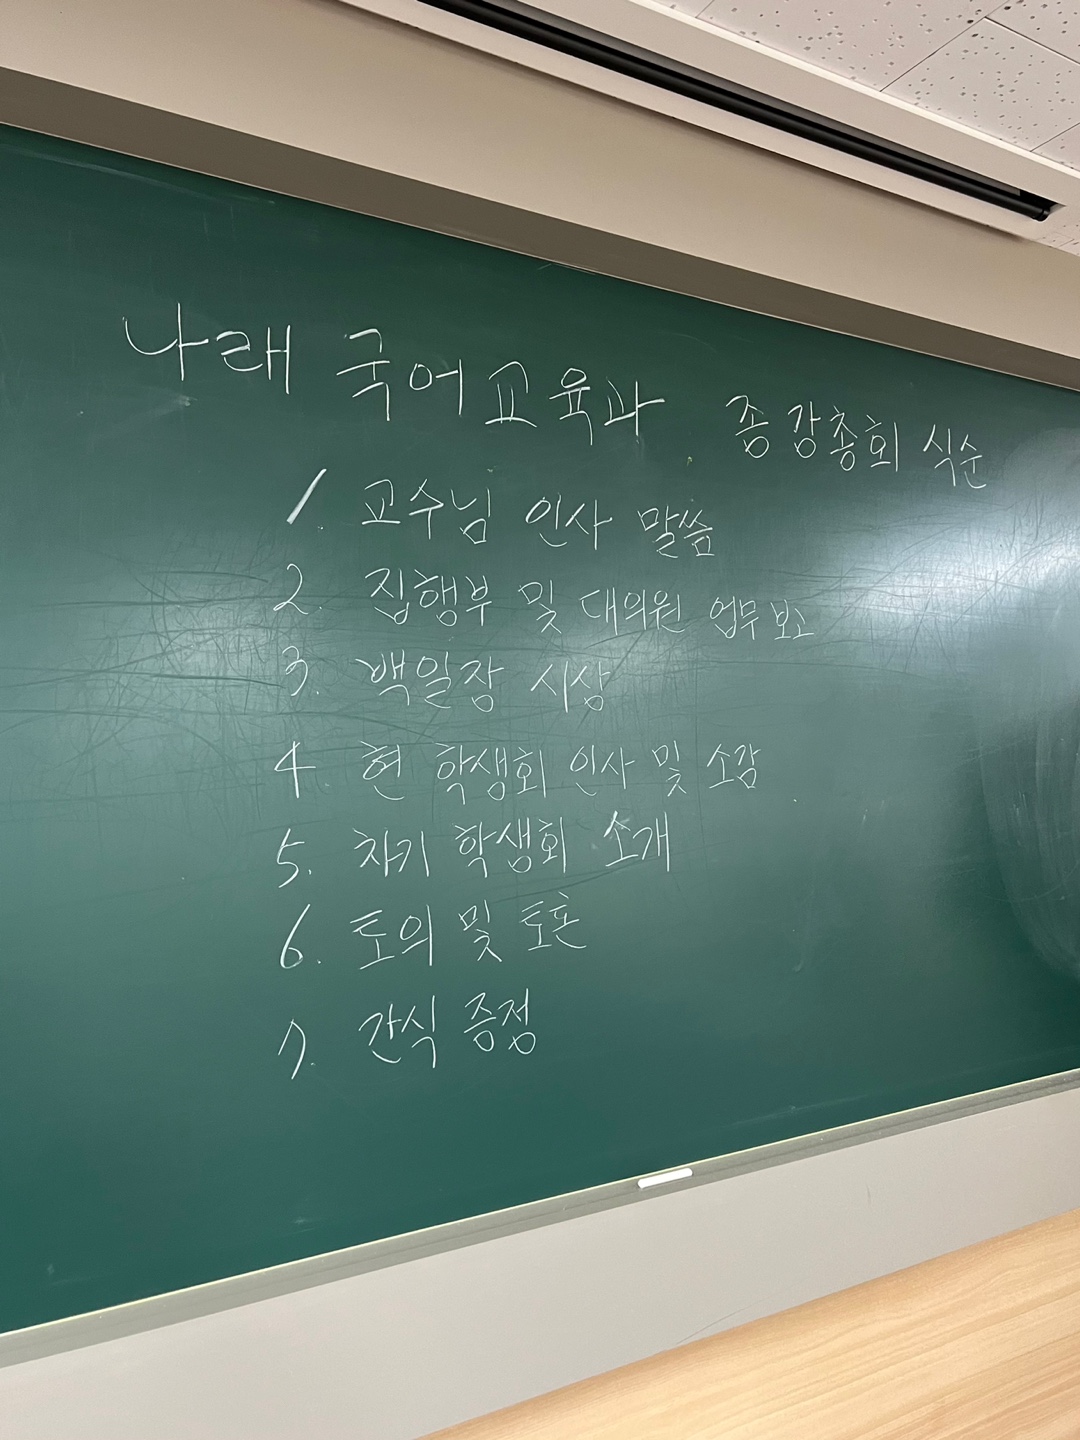 나래 국어교육과 종강총회 식순
1. 교수님 인사 말씀
2. 집행부 및 대의원 업무 보고
3. 백일장 시상
4. 현 학생회 인사 및 소감
5. 차기 학생회 소개
6. 토의 및 토론
7. 간식 증정